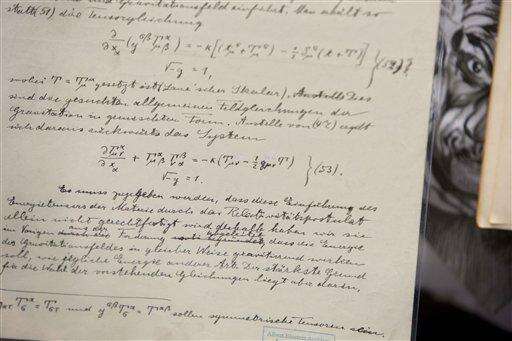 Gravitationsfeld einführt. Man erhält so
statt (51) die Tensorgleichung
∂/∂x_α (g^{σβ} Γ^α_{μβ}) = -κ[(t_μ^σ + T_μ^σ) - ½ δ_μ^σ (t + T)] } (52)
√-g = 1,
wobei T = T_μ^μ gesetzt ist (Laue'scher Skalar). Dies
sind die gesuchten allgemeinen Feldgleichungen der
Gravitation in gemischter Form. Anstelle von (47) ergibt
sich daraus rückwärts das System
∂Γ^α_{μν}/∂x_α + Γ^α_{μβ} Γ^β_{να} = -κ(T_{μν} - ½ g_{μν} T) } (53).
√-g = 1.
Es muss zugegeben werden, dass diese Einführung des
Energietensors der Materie durch das Relativitätspostulat
allein nicht gerechtfertigt wird; deshalb haben wir sie
im Vorigen aus der Forderung abgeleitet, dass die Energie
des Gravitationsfeldes in gleicher Weise gravitierend wirken
soll, wie jegliche Energie anderer Art. Der stärkste Grund
für die Wahl der vorstehenden Gleichungen liegt aber darin,
T_σ^α = T_{στ} und g^{σβ} T_σ^α = T^{αβ} sollen symmetrische Tensoren sein.
Albert Einstein Archives